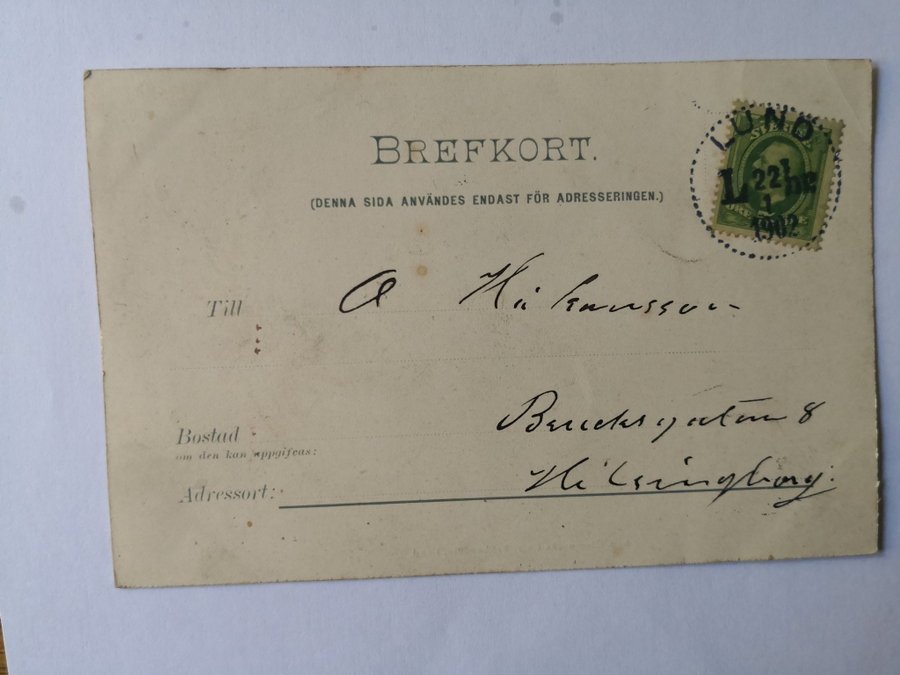 BREFKORT.
(DENNA SIDA ANVÄNDES ENDAST FÖR ADRESSERINGEN.)
LUND
22 1
1902
Till
A Håkansson
Bostad
8
om den kan uppgifvas:
Helsingborg.
Adressort: